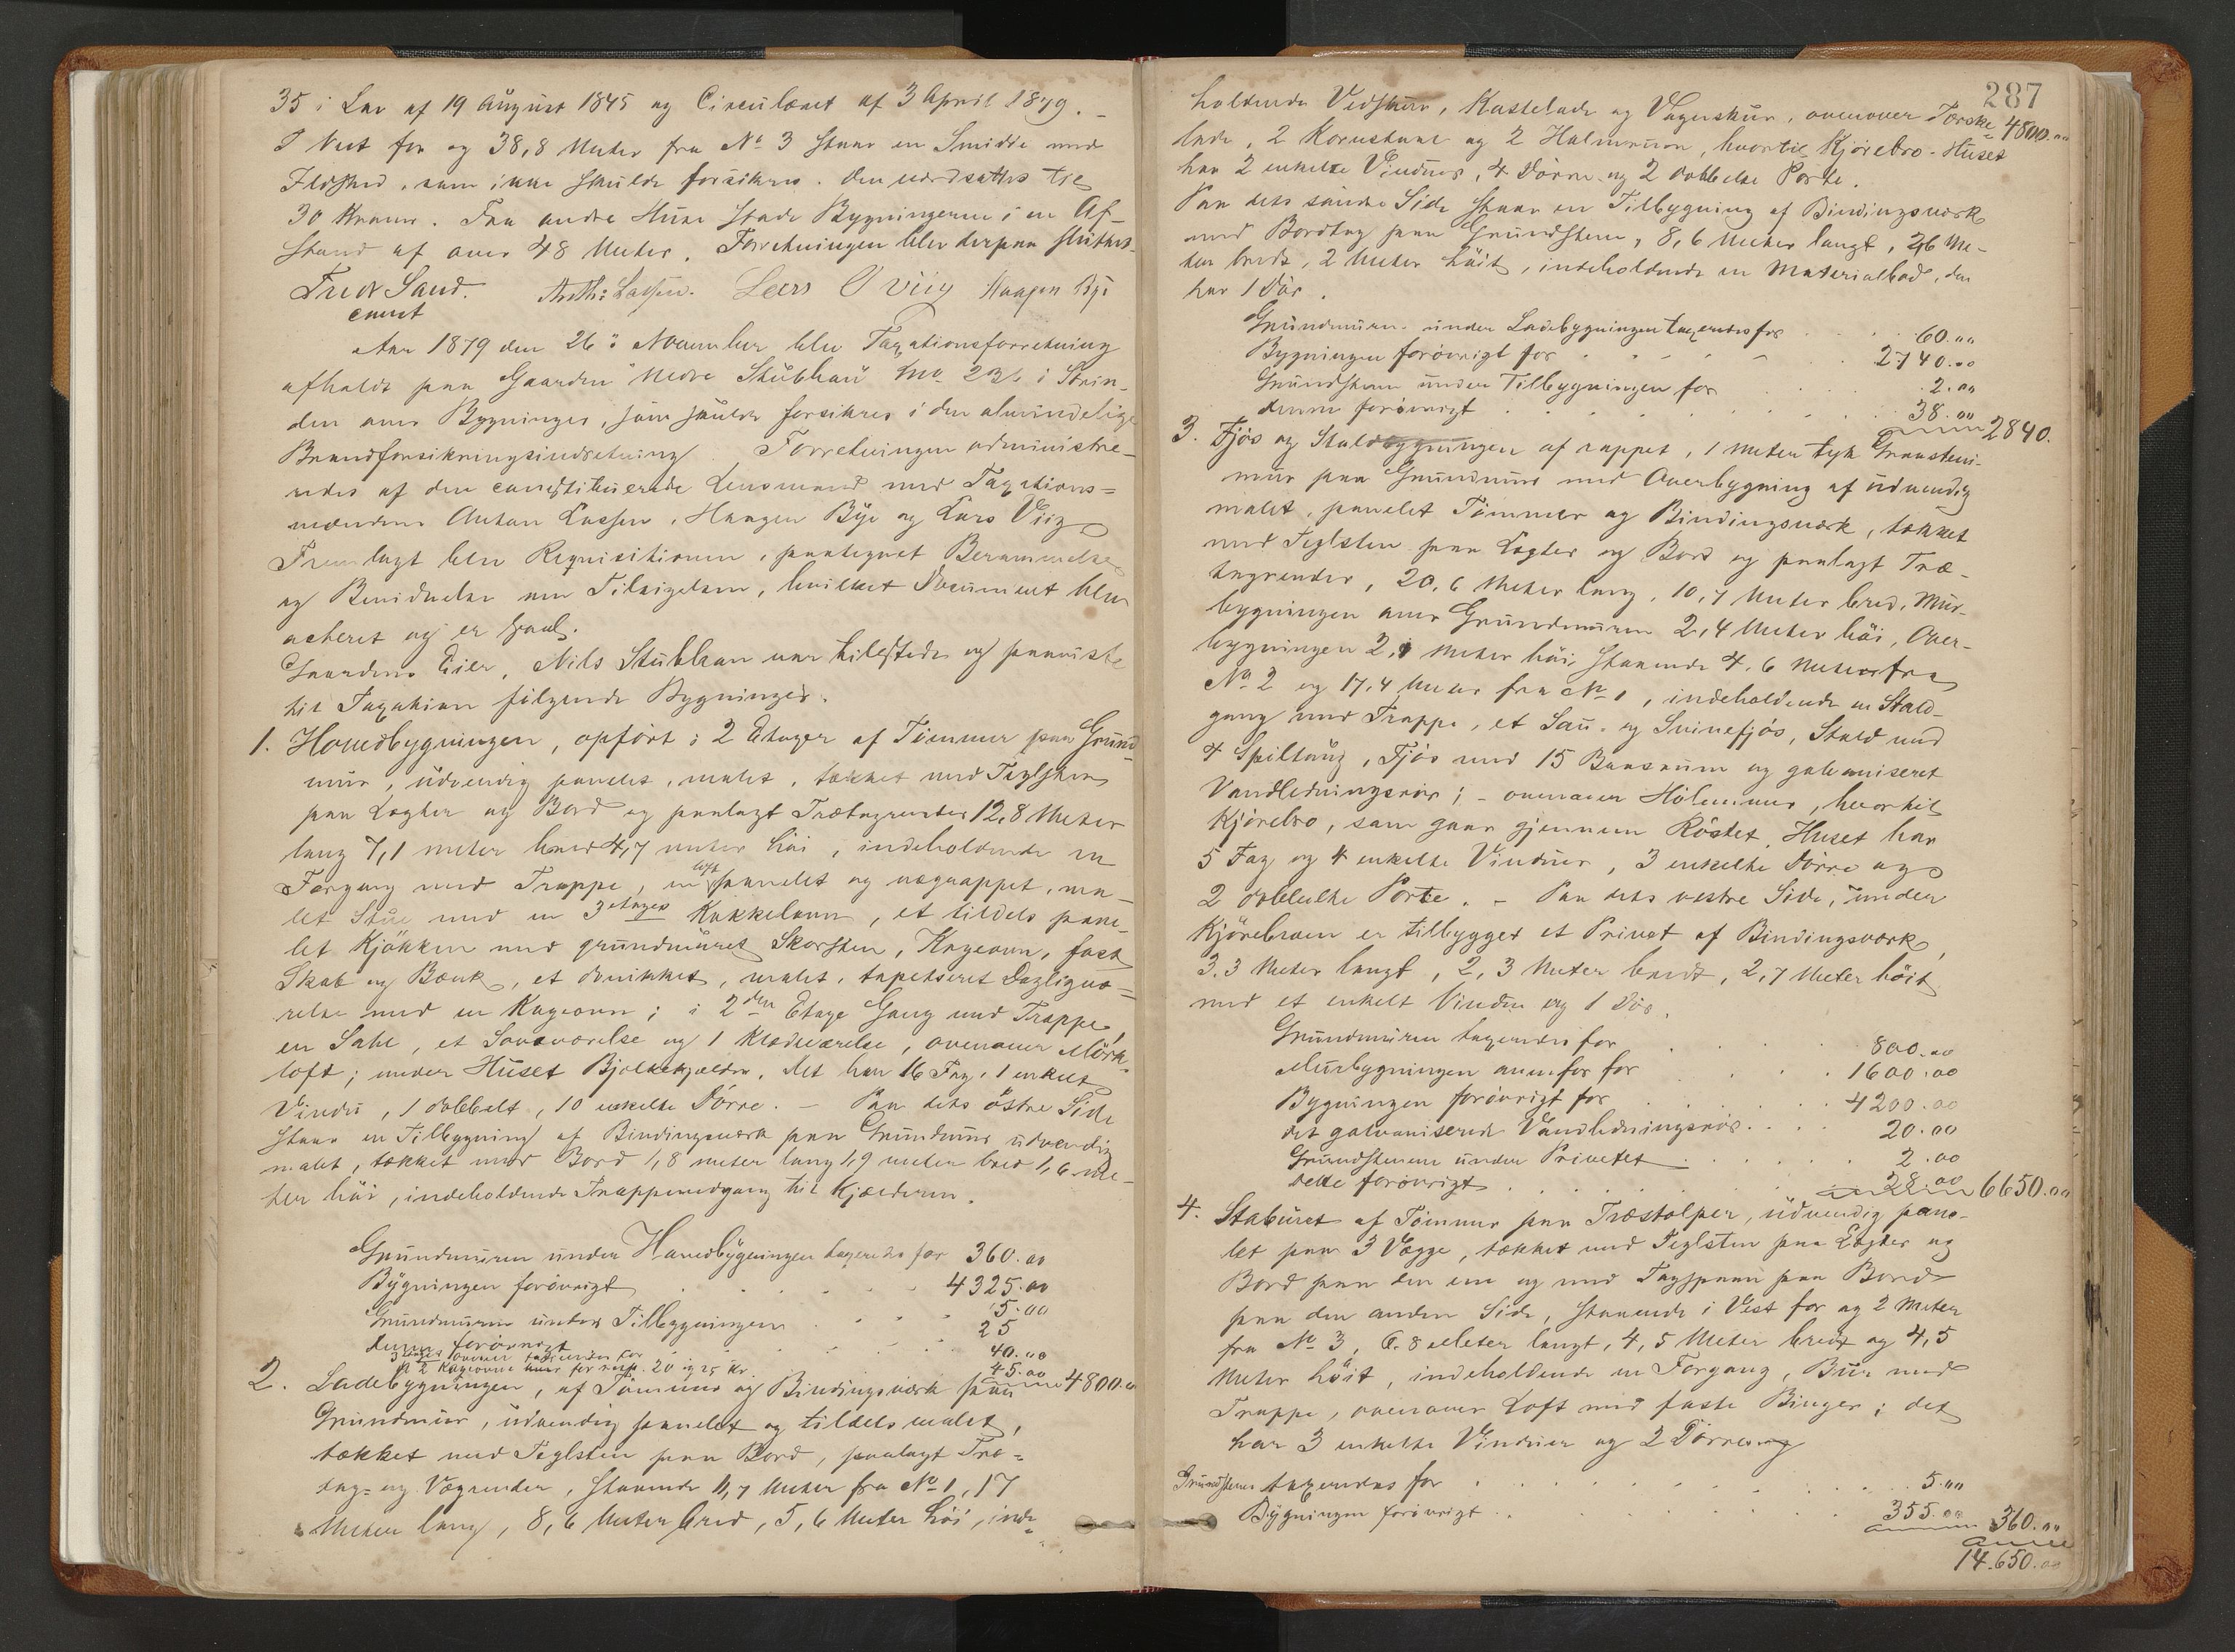 35 i Lov af 19 August 1845 og Circulæret af 3 April 1879. -
I Vest for og 38,8 Meter fra No 3 staar en Smidie med
Ildsted, som ikke skulde forsikres. Den værdsattes til
30 Kroner. Fra andre Huse stade Bygningerne i en Af-
stand af over 48 Meter. Forretningen blev derpaa sluttet.
Fredr Sand. Anth: Lassen. Lars Viig Haagen Bye
const
Aar 1879 den 26: November blev Taxationsforretning
afholdt paa Gaarden Nedre Stubban Mno 231 i Strin-
den over Bygninger, som skulde forsikres i den almindelige
Brandforsikringsindretning. Forretningen administre-
redes af den constituerede Lensmand med Taxations=
mændene Anton Lassen, Haagen Bye og Lars Viig
Fremlagt blev Requisitionen, paategnet Berammelse
og Bevidnelse om Tilsigelsen, hvilket Document blev
acteret og er saal.
Gaardens Eier, Nils Stubban var tilstede og paaviste
til Taxation følgende Bygninger.
1. Hovedbygningen, opført i 2 Etager af Tømmer paa Grund-
mur, udvendig panelet, malet, tækket med Teglsten
paa Lægter og Bord og paalagt Trætagrender 12,8 Meter
lang 7,1 meter bred 4,7 meter høi, indeholdende en
Forgang med Trappe, en loft panelet og vægrappet, ma-
let Stue med en 3 etages Kakkelovn, et tildels pane-
let Kjøkken med grundmuret Skorsten, Kogeovn, fast
Skab og Bænk, et brækket, malet, tapetseret Dagligvæ=
relse med en Kogeovn; i 2den Etage Gang med Trappe,
en Sahl, et Soveværelse og 1 Klædeværelse, ovenover Mørk-
loft; under Huset Bjelkekjælder. Det har 16 Fag, 1 enkelt
Vindu, 1 dobbelt, 10 enkelte Dörre. - Paa dets østre Side
staar en Tilbygning af Bindingsværk paa Grundmur udvendig
malet, tækket med Bord 1,8 meter lang 1,9 meter bred 1,6 me-
ter høi, indeholdende Trappenedgang til Kjælderen.
Grundmuren under Hovedbygningen taxeredes for 360.00
Bygningen forøvrigt 4325.00
Grundmuren under Tilbygningen 5.00
denne forøvrigt 25
3 etages ovnen taxeredes for 40.00
2 Kogeovne for resp. 20 og 25 Kr. 45.00
4800.00
2. Ladebygningen, af Tømmer og Bindingsværk paa
Grundmur, udvendig panelet og tildels malet,
tækket med Teglsten paa Bord, paalagt Træ=
tag- og Vægrender, staaende 11,7 Meter fra No 1, 17
Meter lang, 8,6 Meter bred, 5,6 Meter høi, inde-
287
holdende Vedskur, Kastelade og Vognskur, ovenover Tørske 4800.00
lade, 2 Kornstaal og 2 Halmrum, hvortil Kjørebro. Huset
har 2 enkelte Vinduer, 4 Dörre og 2 dobbelte Porte.
Paa dets søndre Side staar en Tilbygning af Bindingsværk
med Bordtag paa Grundstene, 8,6 Meter langt, 2,6 Me-
ter bredt, 2 Meter høit, indeholdende en Materialbod, den
har 1 Dör.
Grundmuren under Ladebygningen taxeredes for 60.00
Bygningen forøvrigt for 2740.00
Grundstene under Tilbygningen for 2.00
denne forøvrigt 38.00
2840.
3. Fjøs og Staldbygningen af rappet, 1 Meter tyk Graasten-
mur paa Grundmur med Overbygning af udvendig
malet, panelet Tømmer og Bindingsværk, tækket
med Teglsten paa Lægter og Bord og paalagt Træ-
tagrender, 20,6 Meter lang, 10,7 Meter bred, Mur-
bygningen over Grundmuren 2,4 Meter høi, Over-
bygningen 2, Meter høi, staaende 4,6 Meter fra
No 2 og 17,4 Meter fra No 1, indeholdende en Stald-
gang med Trappe, et Sau- og Svinefjøs, Stald med
4 Spiltaug, Fjøs med 15 Baasrum og galvaniseret
Vandledningsrør; - ovenover Hølemmer, hvortil
Kjørebro, som gaar gjennem Röstet. Huset har
5 Fag og 4 enkelte Vinduer, 3 enkelte Dörre og
2 dobbelte Porte. - Paa dets vestre Side, under
Kjørebroen er tilbygget et Privet af Bindingsværk,
3,3 Meter langt, 2,3 Meter bredt, 2,7 Meter høit
med et enkelt Vindu og 1 Dör.
Grundmuren taxeredes for 800.00
Murbygningen ovenfor for 1600.00
Bygningen forøvrigt for 4200.00
det galvaniserede Vandledningsrør 20.00
Grundstenene under Privetet 2.00
dette forøvrigt 28.00
6650.00
4. Staburet af Tømmer paa Træstolper, udvendig pane-
let paa 3 Vægge, tækket med Teglsten paa Lægter og
Bord paa den ene og med Tagspaan paa Bord
paa den anden Side, staaende i Vest for og 2 Meter
fra No 3, 6,8 Meter langt, 4,5 Meter bredt og 4,5
Meter høit, indeholdende en Forgang, Bur med
Trappe, ovenover Loft med faste Binger; det
har 3 enkelte Vinduer og 2 Dörre
Grundstene taxeredes for 5.00
Bygningen forøvrigt 355.00
360.00
14.650.00